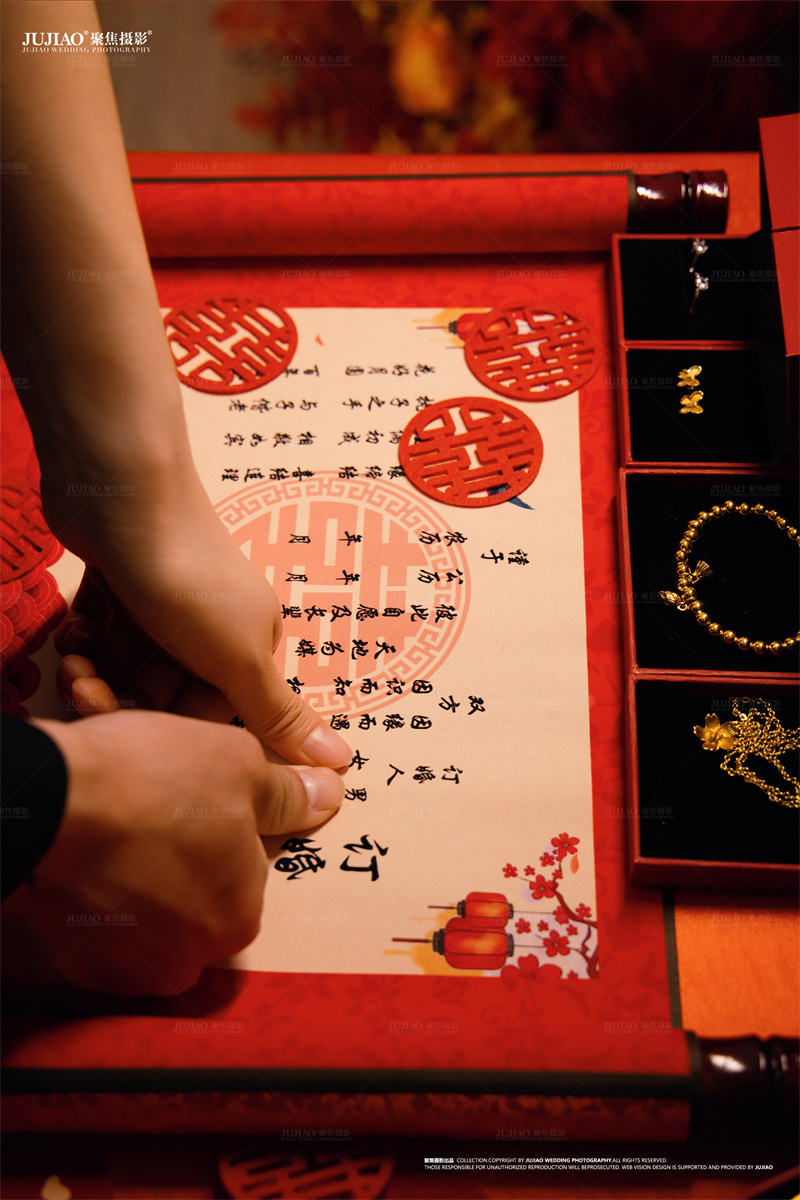 JUJIAO® 聚焦摄影®
JUJIAO WEDDING PHOTOGRAPHY
订婚
订婚人 男
女
双方 因缘而遇
因识而知
天地为媒
彼此自愿及长辈
谨于
公历 年 月
农历 年 月
缔结 喜结连理
偶初成 相敬如宾
执子之手 与子偕老
花好月圆 百年
聚焦摄影出品 COLLECTION.COPYRIGHT BY JUJIAO WEDDING PHOTOGRAPHY.ALL RIGHTS RESERVED.
THOSE RESPONSIBLE FOR UNAUTHORIZED REPRODUCTION WILL BEPROSECUTED. WEB VISION DESIGN IS SUPPORTED AND PROVIDED BY JUJIAO